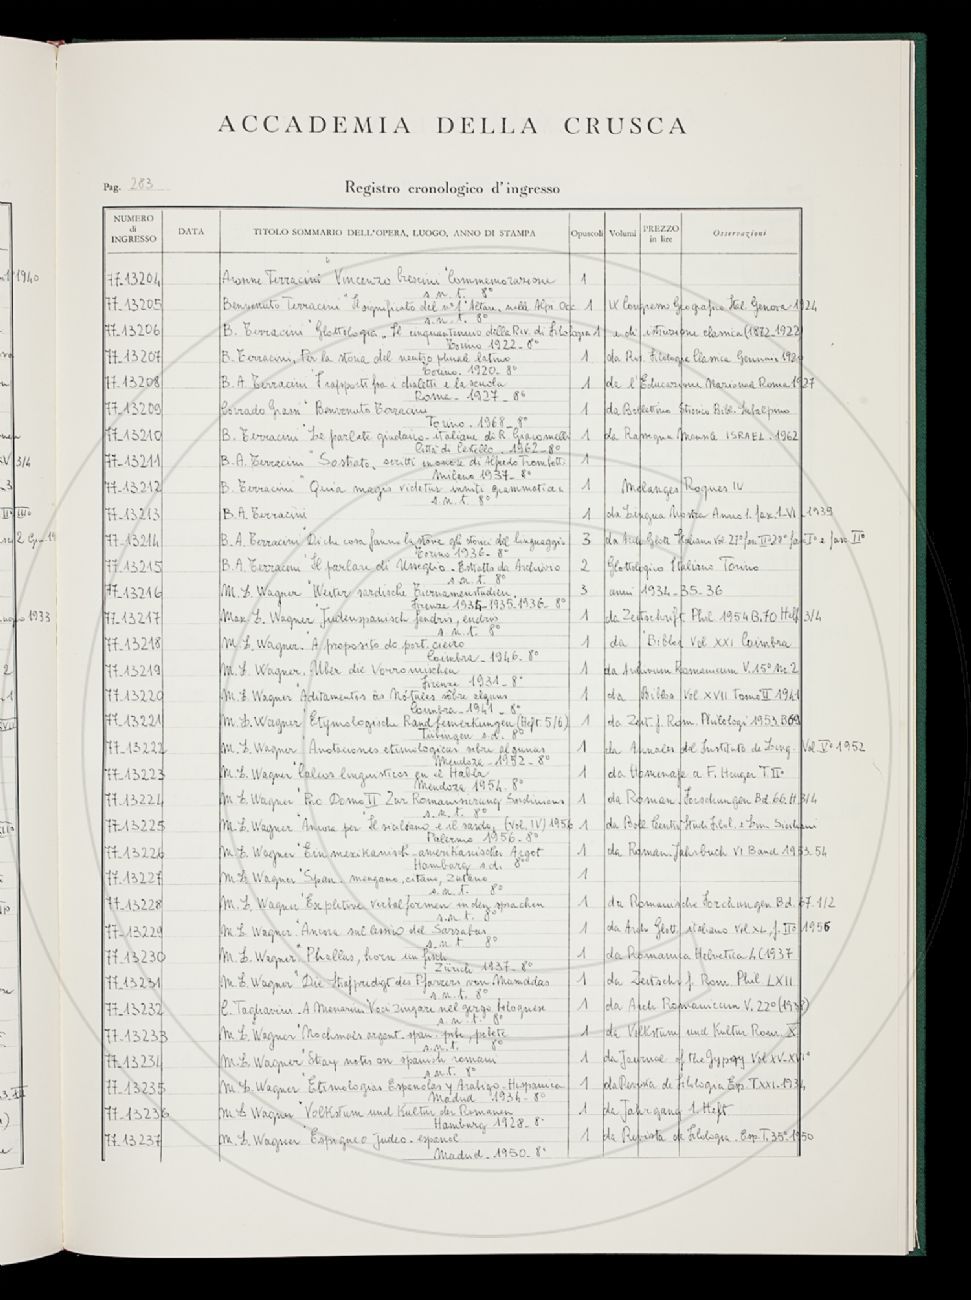 ACCADEMIA DELLA CRUSCA
Pag. 283
Registro cronologico d'ingresso
NUMERO di INGRESSO DATA TITOLO SOMMARIO DELL'OPERA, LUOGO, ANNO DI STAMPA Opuscoli Volumi PREZZO in lire Osservazioni
77-13204 Aronne Terracini "Vincenzo Crescini" Commemorazione 1
s.n.t. 8°
77-13205 Benvenuto Terracini "Il significato del n° 1 Altare, nelle Alpi Occ. 1 IX Congresso Geografico Ital. Genova 1924
s.n.t. 8°
77-13206 B. Terracini "Glottologia" Il cinquantennio della Riv. di Filologia 1 e di istruzione classica (1872-1922)
Torino 1922-8°
77-13207 B. Terracini, Per la storia del neutro plurale latino 1 da Riv. Filologia Classica Gennaio
Torino. 1920-8°
77-13208 B.A. Terracini "I rapporti fra i dialetti e la scuola 1 da l'Educazione Nazionale Roma 1927
Roma - 1927 - 8°
77-13209 Corrado Grassi "Benvenuto Terracini 1 da Bollettino Storico Bibl. Subalpino
Torino. 1968-8°
77-13210 B. Terracini "Le parlate giudaico-italiane di R. Giacomelli 1 da Rassegna Mensile ISRAEL. 1962
Città di Castello. 1962-8°
77-13211 B.A. Terracini "Sostrato, scritti in onore di Alfredo Trombetti 1
Milano 1937-8°
77-13212 B. Terracini "Quia magis videtur inniti grammatica 1 Melanges Roques IV
s.n.t. 8°
77-13213 B.A. Terracini 1 da Lingua Nostra Anno 1. fasc. 1-VI - 1939
77-13214 B.A. Terracini "Di che cosa fanno la storia gli storici del linguaggio 3 da Arch. Glott. Italiano Vol. 27° fasc. II° 28° fasc. I° e fasc. II°
Torino 1936-8°
77-13215 B.A. Terracini "Il parlare di Usseglio. Estratto da Archivio 2 Glottologico Italiano Torino
s.n.t. 8°
77-13216 M.L. Wagner "Weiter sardische Tiernamenstudien. 3 anni 1934-35-36
Firenze 1934-1935-1936-8°
77-13217 Max. L. Wagner "Judenspanisch 1 da Zeitschrift Phil. 1954 B.70 Heft 3/4
s.n.t. 8°
77-13218 M.L. Wagner. "A proposito do port. 1 da Biblos Vol XXI Coimbra
Coimbra - 1946. 8°
77-13219 M.L. Wagner, Über die Vorromischen 1 da Archivum Romanicum V. 15° N. 2
Firenze 1931-8°
77-13220 M.L. Wagner "Aditamentos às Nótulas sôbre alguns 1 da Biblos Vol XVII Tomo II 1941
Coimbra - 1941 - 8°
77-13221 M.L. Wagner "Etymologische Randbemerkungen (Heft. 5/6) 1 da Zeit. f. Rom. Philologi 1953. B69
Tübingen s.d. 8°
77-13222 M.L. Wagner "Anotaciones etimologicas sobre algunas 1 da Annales del Instituto de Ling. Vol. V° 1952
Mendoza - 1952 - 8°
77-13223 M.L. Wagner "Calcos linguisticos en el Habla 1 da Homenaje a F. Krüger T. II°
Mendoza 1954. 8°
77-13224 M.L. Wagner "Pro Domo II Zur Romanisierung Sardiniens 1 da Roman. Forschungen Bd. 66. H. 3/4
s.n.t. 8°
77-13225 M.L. Wagner "Ancora per "Il siciliano e il sardo, (Vol. IV) 1956 1 da Boll. Centro Studi Filol. e Ling. Siciliani
Palermo 1956-8°
77-13226 M.L. Wagner "Ein mexikanisch-amerikanischer Argot 1 da Roman. Jahrbuch VI Band 1953-54
Hamburg s.d. 8°
77-13227 M.L. Wagner "Span. mengano, citano, zutano 1
s.n.t. 8°
77-13228 M.L. Wagner "Expletive verbalformen in den sprachen 1 da Romanische Forschungen Bd. 67. 1/2
s.n.t. 8°
77-13229 M.L. Wagner "Ancora sul lessico del Sarrabus 1 da Arch. Glott. italiano Vol. XL, f. II° 1956
s.n.t 8°
77-13230 M.L. Wagner "Phallus, horn un fisch 1 da Romanica Helvetica 4 (1937
Zürich 1937-8°
77-13231 M.L. Wagner "Die Strafpredigt des Pfarrers von Masuddas 1 da Zeitsch. f. Rom. Phil. LXII
s.n.t. 8°
77-13232 C. Tagliavini - A Menarini Voci Zingare nel gergo bolognese 1 da Arch. Romanicum V. 22° (1938)
s.n.t. 8°
77-13233 M.L. Wagner "Nochmals argent. span. 1 da Volkstum und Kultur Rom. X
s.n.t. 8°
77-13234 M.L. Wagner "Stray notes on spanish romani 1 da Journal of the Gypsy Vol XV-XVI°
s.n.t. 8°
77-13235 M.L. Wagner "Etimologias Españolas y Arabigo-Hispanica 1 da Revista de Filologia Esp. T. XXI-1934
Madrid 1934-8°
77-13236 M.L. Wagner "Volkstum und Kultur der Romanen 1 da Jahrgang 1. Heft
Hamburg 1928-8°
77-13237 M.L. Wagner "Espigueo Judeo-español 1 da Revista de Filologia. Esp. T. 35° 1950
Madrid - 1950-8°